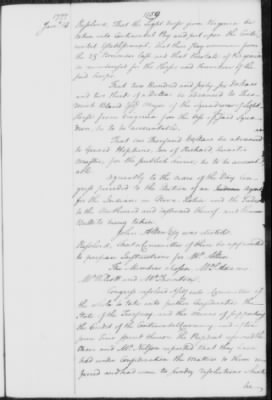 1777
Jan.y 14
1059
Resolved, That the Light Horse from Virginia be
taken into Continental Pay and put upon the Conti-
nental Establishment, that their Pay commence from
the 25 November last and that the State of Virginia
be for the Horses and of the
said Troops.
That two Hundred and forty five Dollars
and two thirds of a Dollar be advanced to Theo-
rick Bland Esq.r Major of the Squadron of Light
Horse from Virginia for the Use of said Squad-
ron, he to be accountable.
That one thousand Dollars be advanced
to Gerard Hopkins, Son of Richard
for the publick Service he to be account-
able.
Agreeably to the order of the Day Con-
gress proceeded to the Election of an Agent
for the Indians in Nova Scotia and the Tribes
to the Northward and eastward thereof and the
Ballots being taken,
John Allan Esq was elected
Resolved, That a Committee of three be appointed
to prepare Instructions for M.r Allan
The Members chosen M.r Adams
M.r Wolcott and M.r Thornton.
Congress resolved itself into a Committee of
the whole to take into farther Consideration the
State of the Treasury and the Means of supporting
the Credit of the Continental Currency and after
some time spent thereon the President resumed the
Chair and M.r Nelson reported that they have
had under Consideration the Matters to them re-
ferred and had come to sundry resolutions which